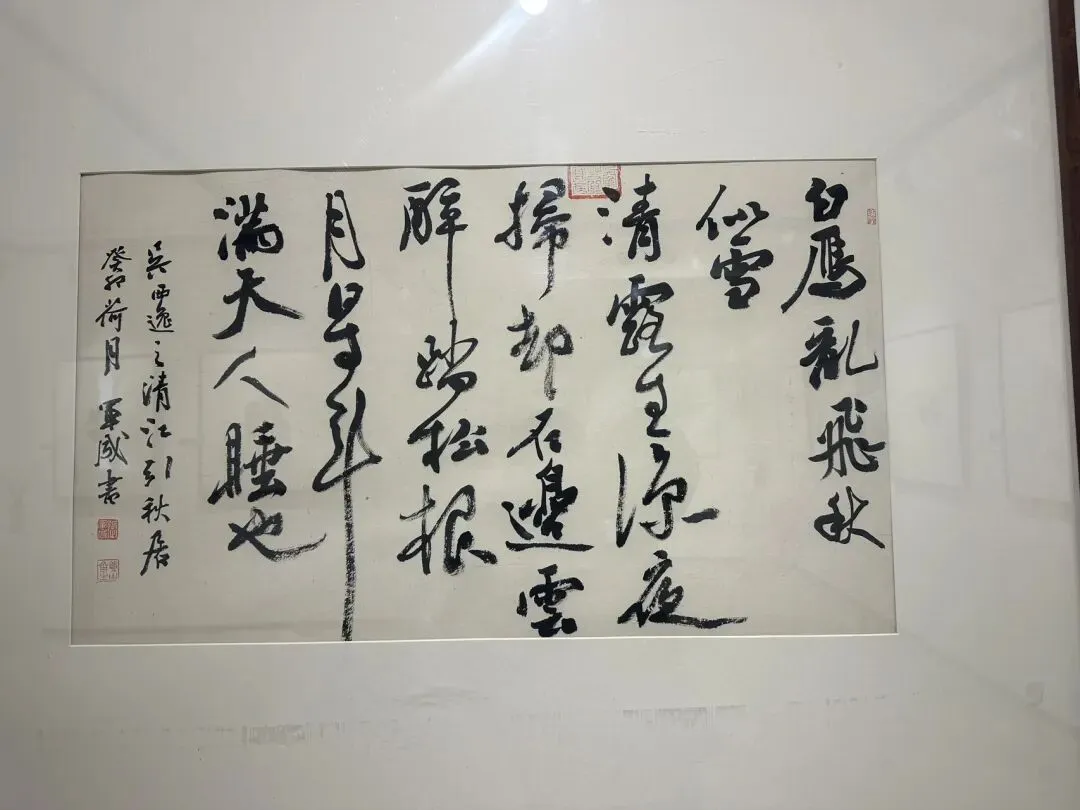 白雁乱飛秋
似雪
清露生凉夜
掃却石邊雲
醉踏松根
月星斗
满天人睡也
吴西逸之清江引秋居
癸卯荷月 军威书